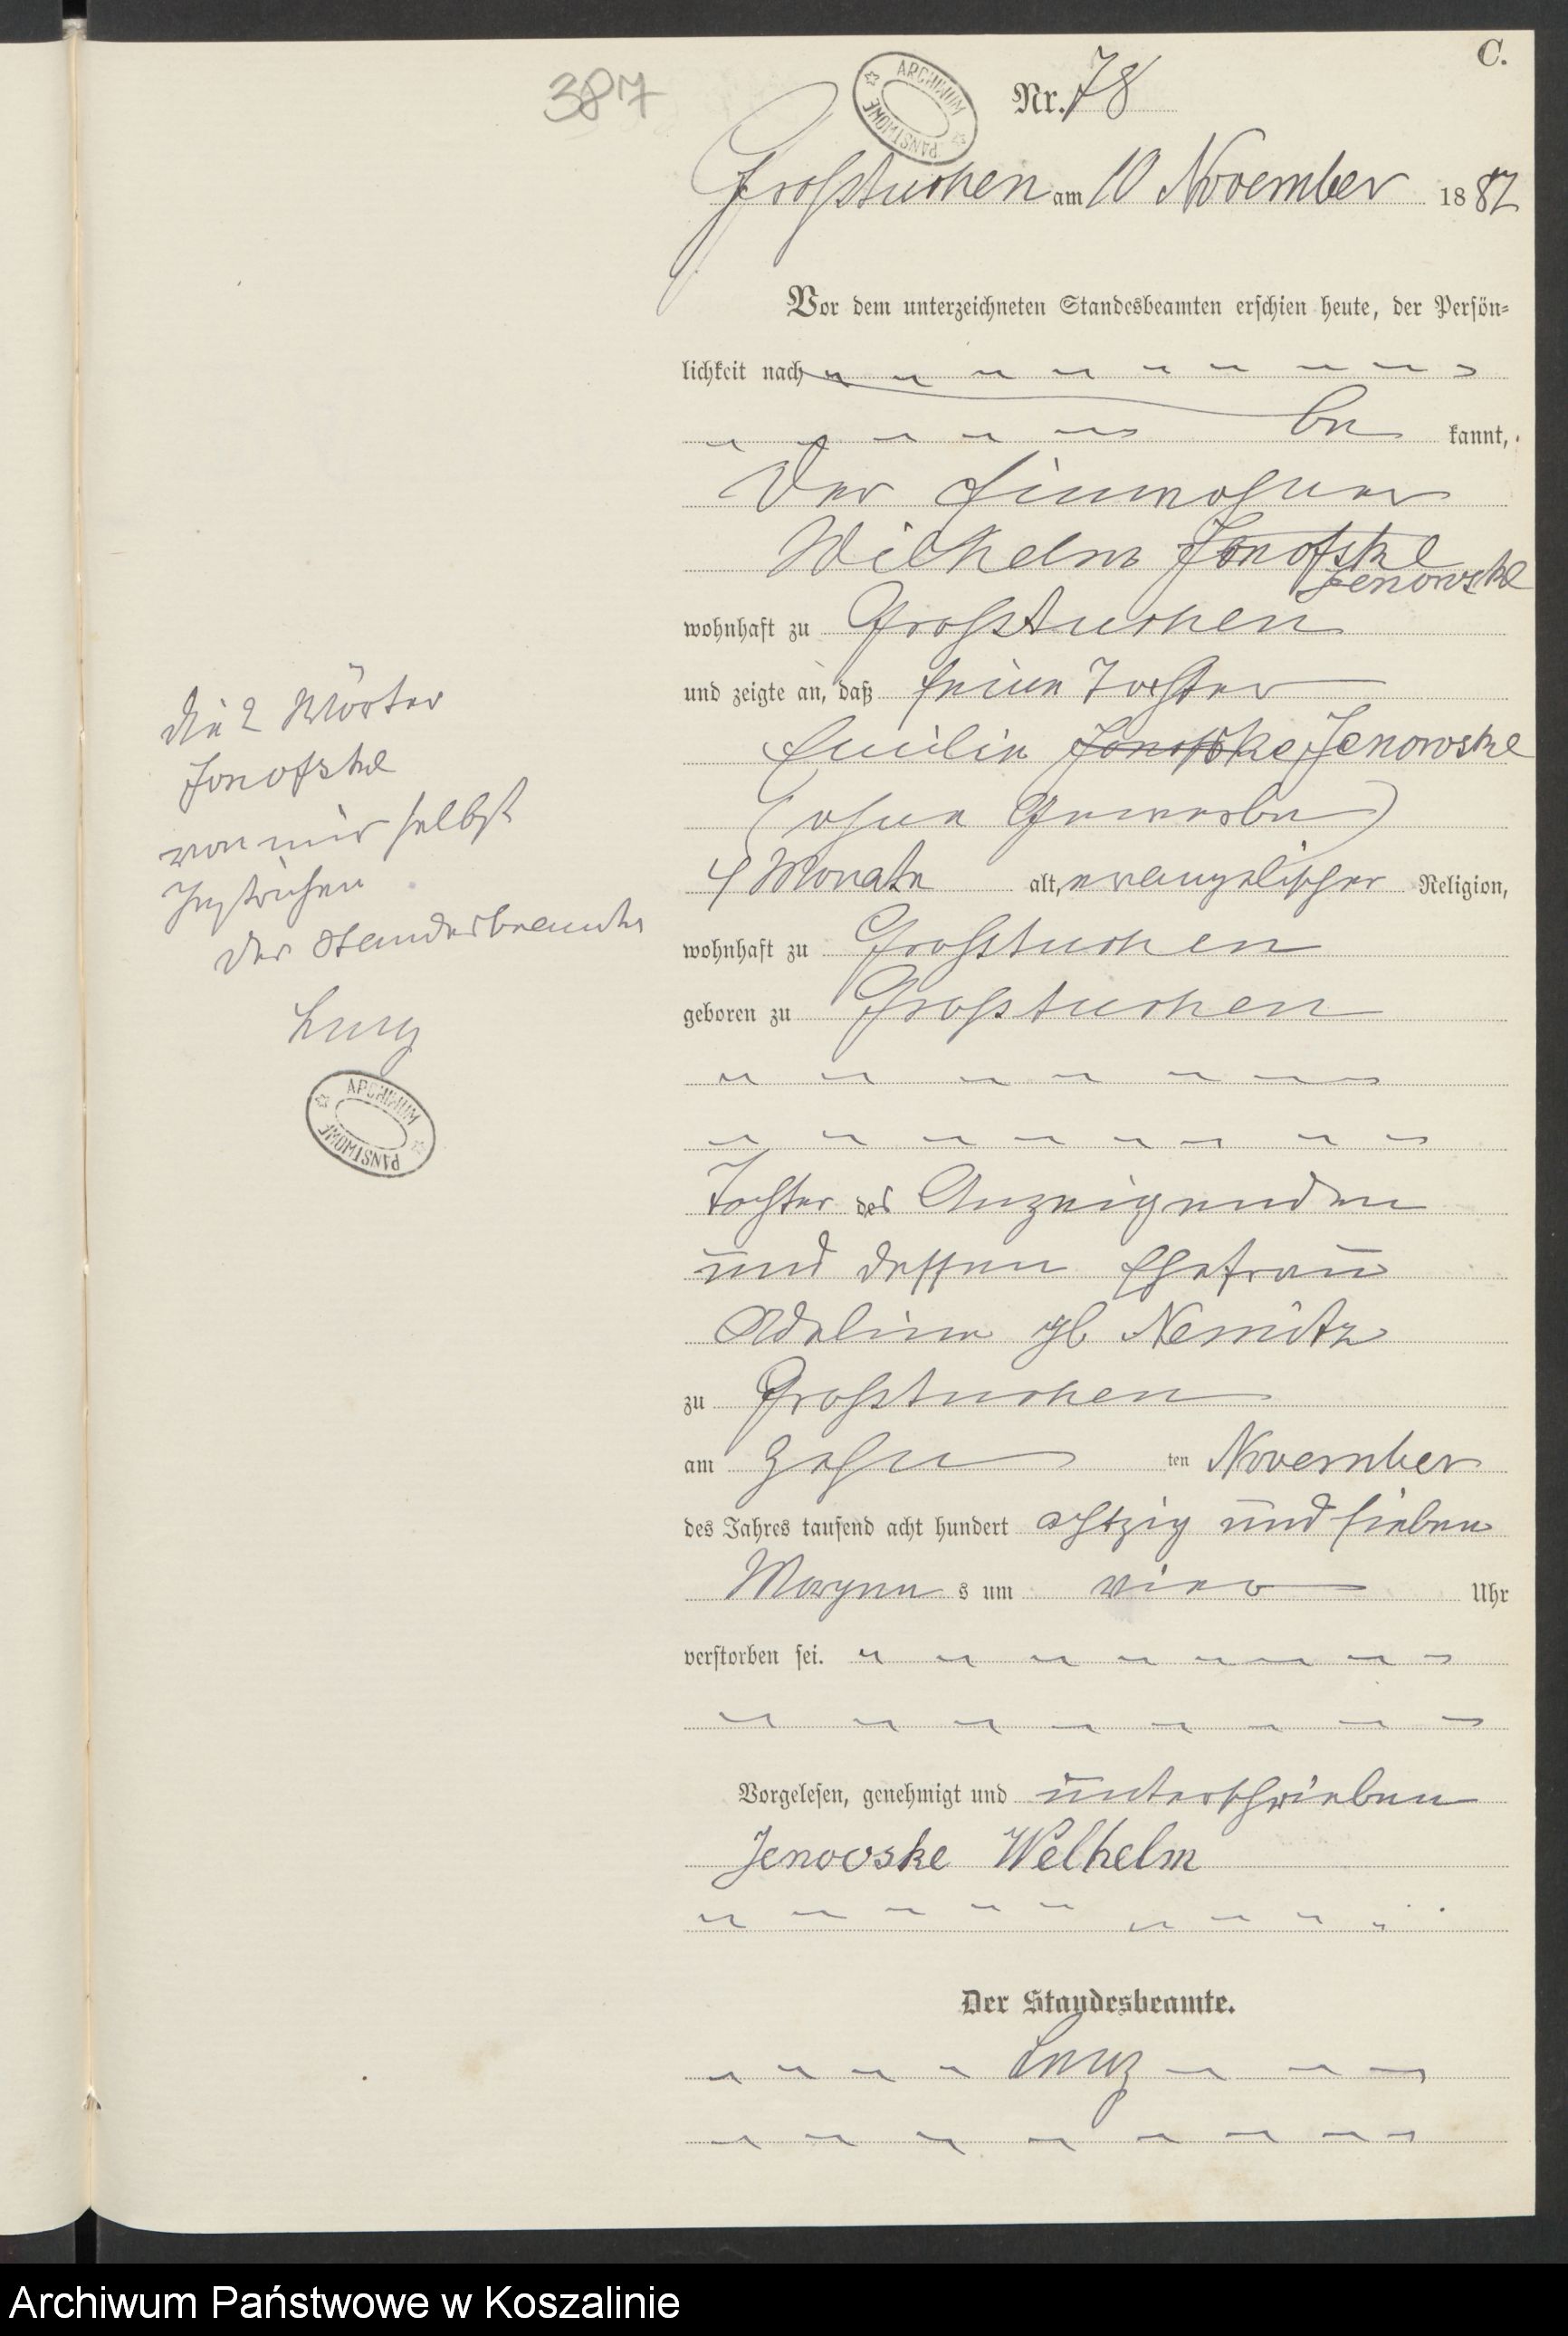 C.
387
ARCHIWUM PAŃSTWOWE
Nr. 78
Großtuchen am 10 November 1887
Vor dem unterzeichneten Standesbeamten erschien heute, der Persön-
lichkeit nach
be kannt,
der Einwohner
Wilhelm Jonofske
Jenowske
wohnhaft zu Großtuchen
und zeigte an, daß seine Tochter
Emilie Jonofske Jenowske
(ohne Gewerbe)
4 Monate alt, evangelischer Religion,
wohnhaft zu Großtuchen
geboren zu Großtuchen
Tochter des Anzeigenden
und dessen Ehefrau
Adeline gb Nemitz
zu Großtuchen
am Zehn ten November
des Jahres tausend acht hundert achtzig und sieben
Morgen s um vier Uhr
verstorben sei.
Vorgelesen, genehmigt und unterschrieben
Jenowske Welhelm
Der Standesbeamte.
die 2 Wörter
Jonofske
von mir selbst
gestrichen
Der Standesbeamte
ARCHIWUM PAŃSTWOWE
Archiwum Państwowe w Koszalinie